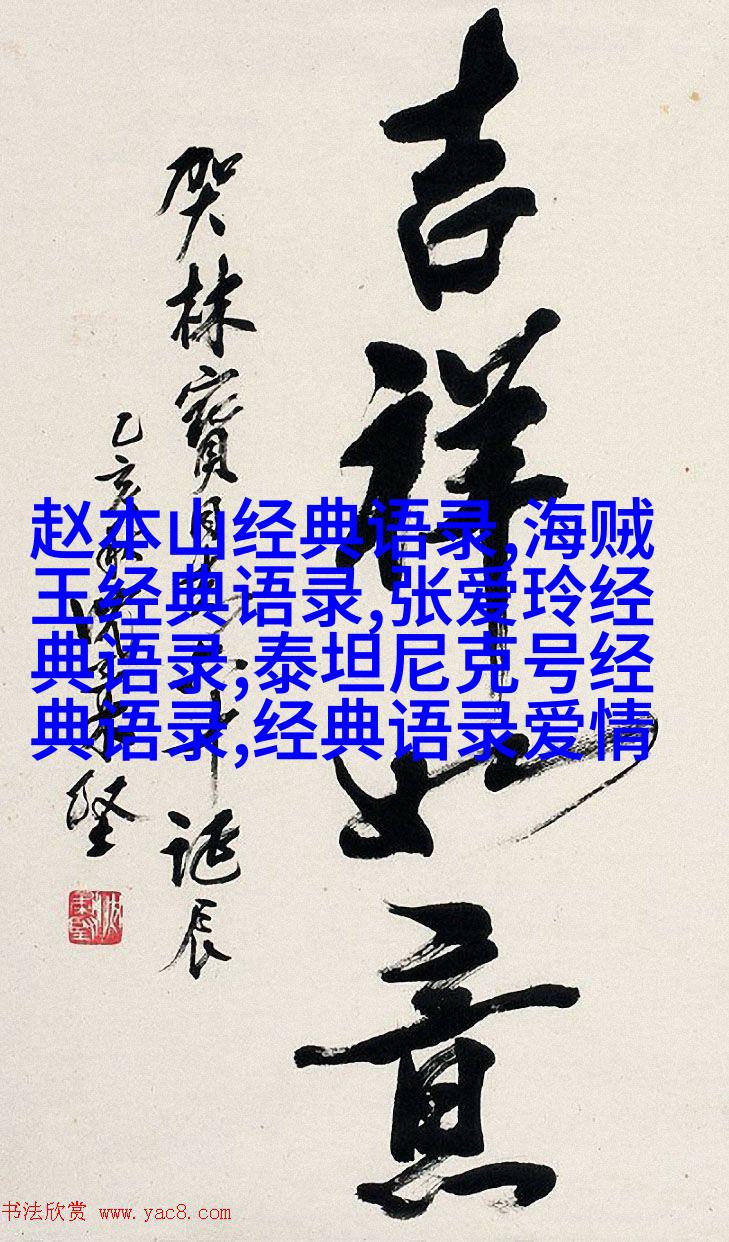 吉祥如意
贺林宝
诞辰
乙亥
坚
赵本山经典语录,海贼
王经典语录,张爱玲经
典语录,泰坦尼克号经
典语录,经典语录爱情
书法欣赏 www.yac8.com